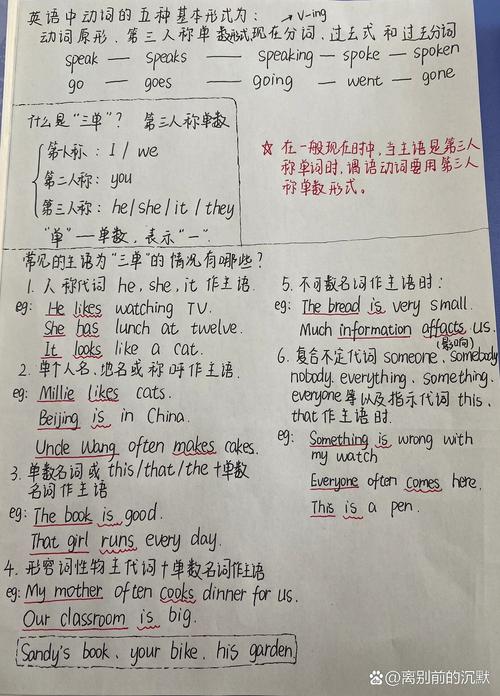 英语中动词的五种基本形式为:
V-ing
动词原形、第三人称单数形式现在分词、过去式和过去分词
speak — speaks — speaking — spoke — spoken
go — goes — going — went — gone
什么是"三单"? 第三人称单数
第一人称: I / we
第二人称: you
第三人称: he/she/it/they
"单"—单数,表示"一".
☆ 在一般现在时中,当主语是第三人
称单词时,谓语动词要用第三人
称单数形式。
常见的主语为"三单"的情况有哪些?
1. 人称代词 he, she, it 作主语.
eg: He likes watching TV.
She has lunch at twelve.
It looks like a cat.
2. 单个人名、地名或称呼作主语.
eg: Millie likes cats.
Beijing is in China.
Uncle Wang often makes cakes.
3. 单数名词或 this/that/the+单数
名词作主语
eg: The book is good.
That girl runs every day.
4. 形容词性物主代词+单数名词作主语
eg: My mother often cooks dinner for us.
Our classroom is big.
Sandy's book、your bike、his garden
5. 不可数名词作主语时:
eg: The bread is very small.
Much information affects us.
(影响)
6. 复合不定代词 someone、somebody
nobody、everything、something、
everyone 等以及指示代词 this、
that 作主语时.
eg: Something is wrong with
my watch
Everyone often comes here.
This is a pen.
@离别前的沉默